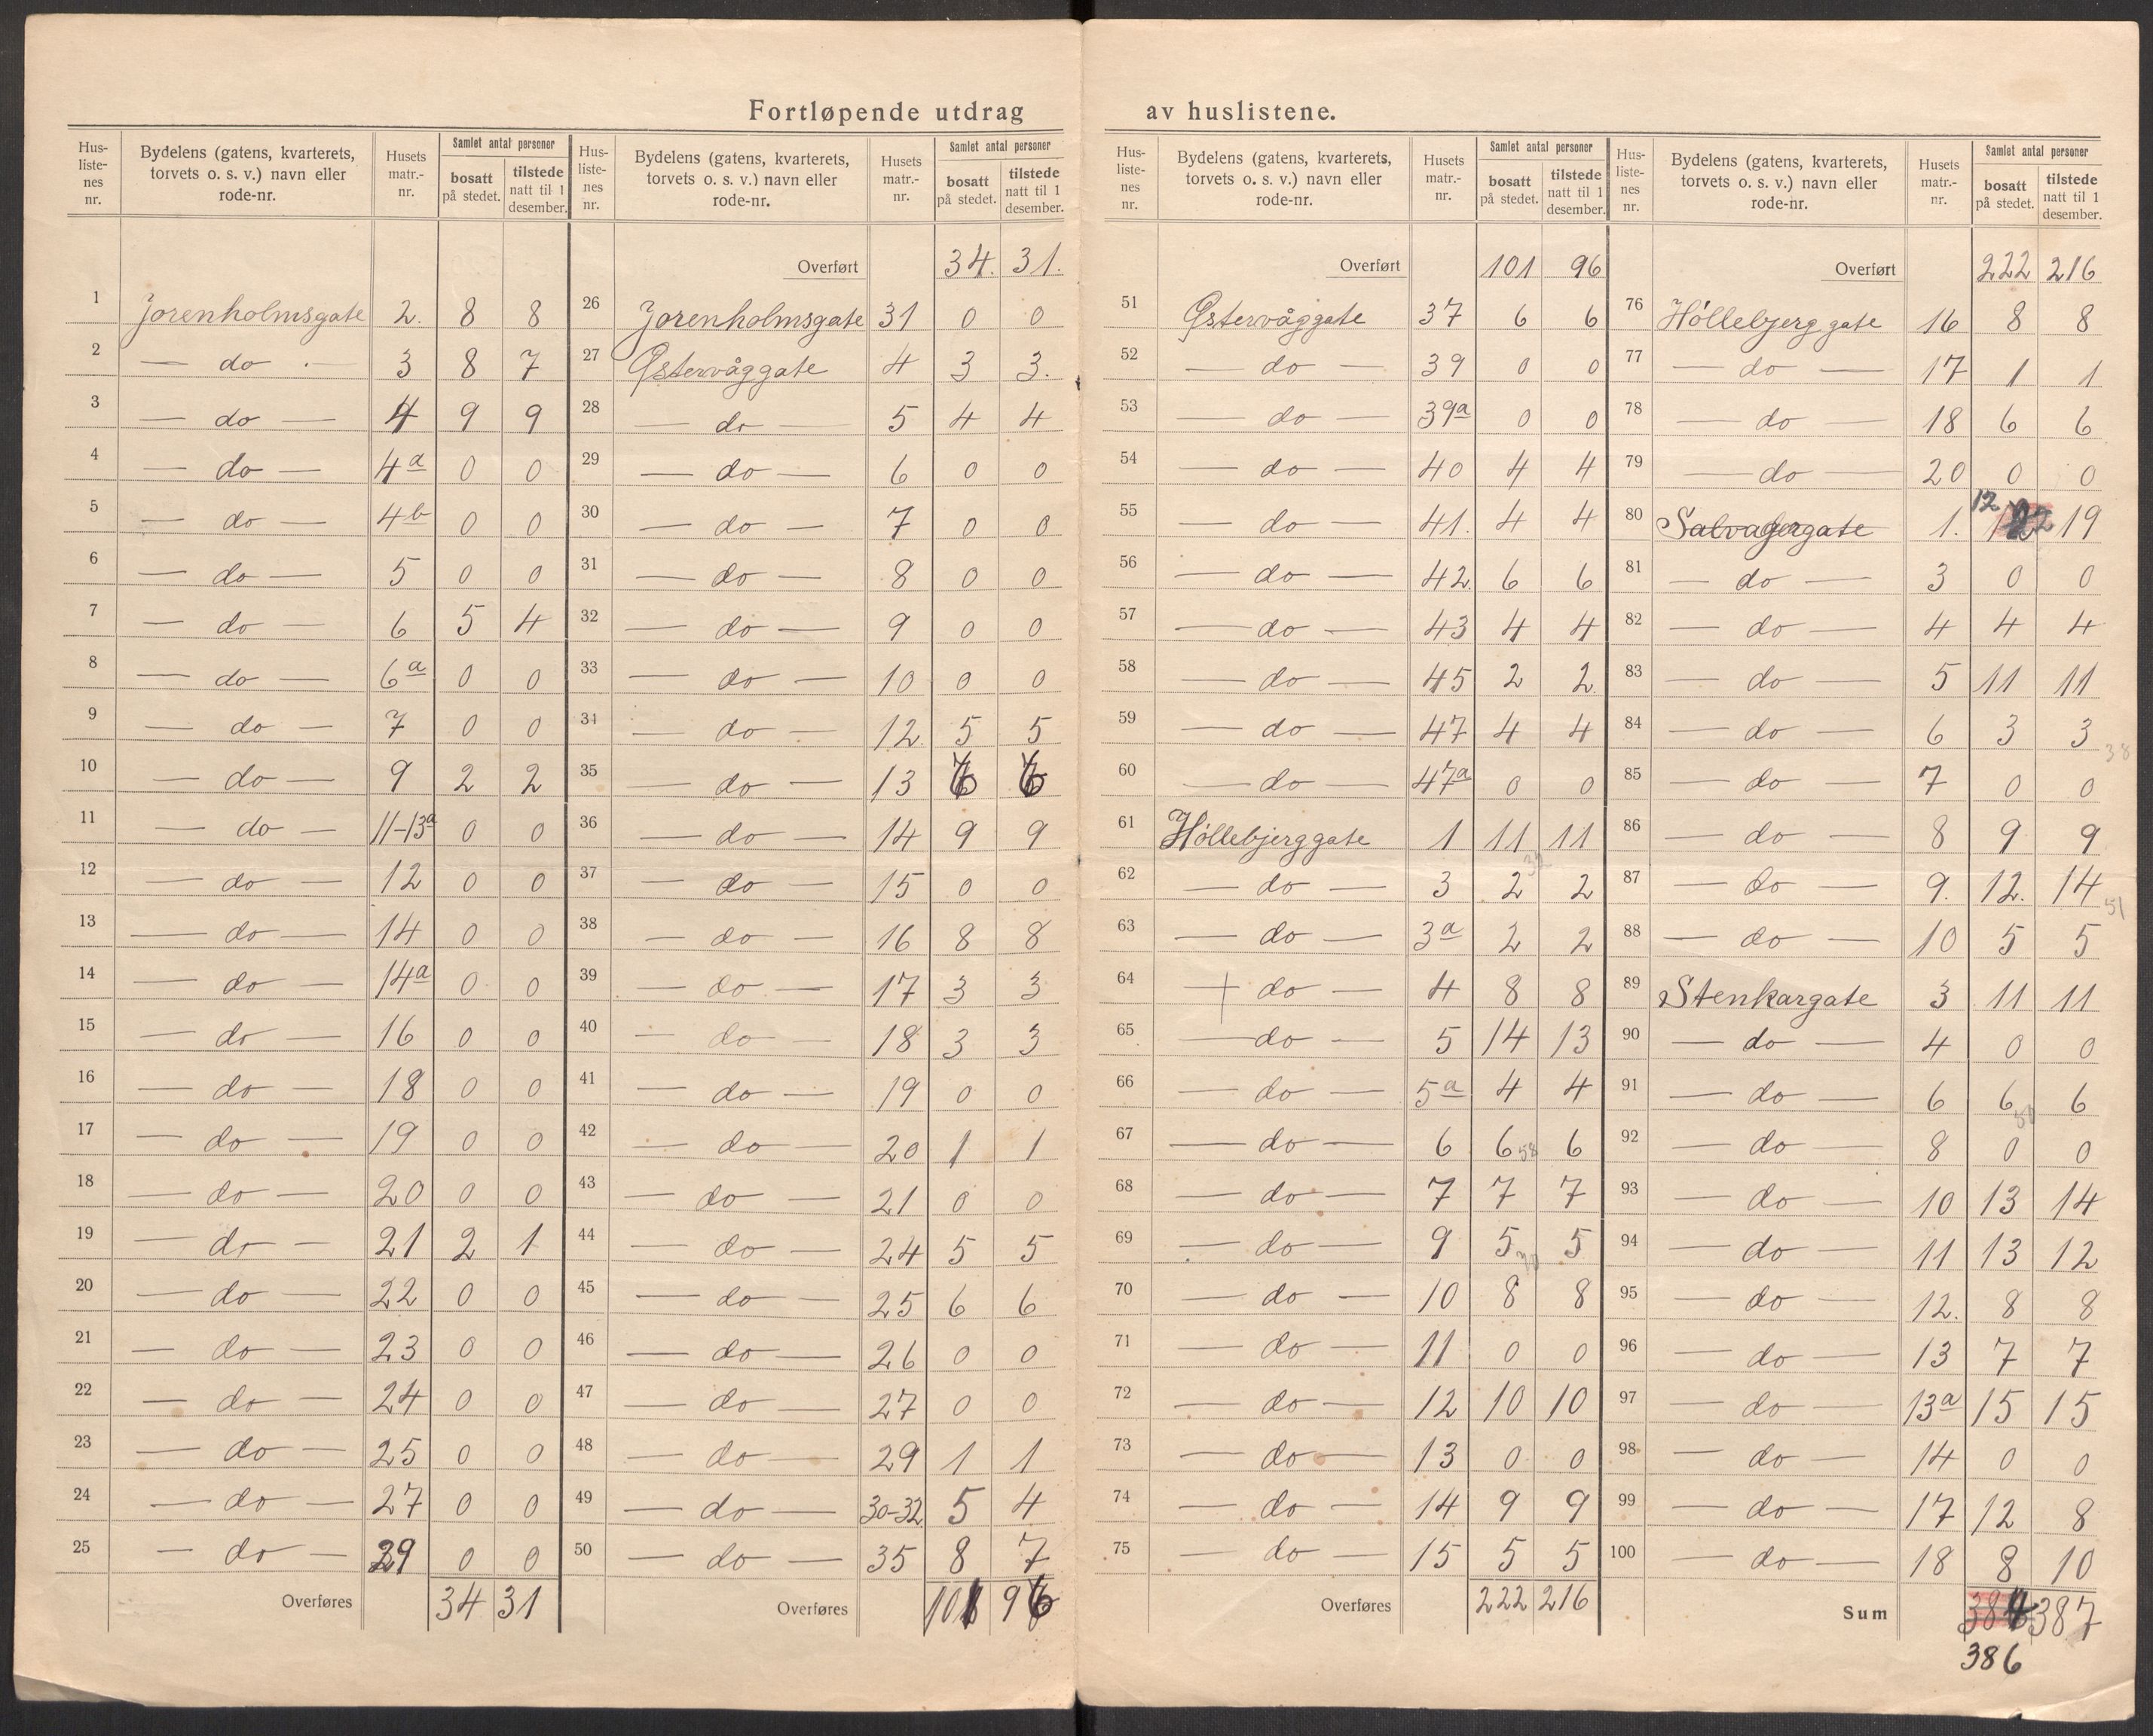 Fortløpende utdrag av huslistene.
Hus-listenes nr. | Bydelens (gatens, kvarterets, torvets o. s. v.) navn eller rode-nr. | Husets matr.-nr. | Samlet antal personer | bosatt på stedet. | tilstede natt til 1 desember.
1 Jorenholmsgate 2. 8 8
2 — do — 3 8 7
3 — do — 4 9 9
4 — do — 4a 0 0
5 — do — 4b 0 0
6 — do — 5 0 0
7 — do — 6 5 4
8 — do — 6a 0 0
9 — do — 7 0 0
10 — do — 9 2 2
11 — do — 11-13a 0 0
12 — do — 12 0 0
13 — do — 14 0 0
14 — do — 14a 0 0
15 — do — 16 0 0
16 — do — 18 0 0
17 — do — 19 0 0
18 — do — 20 0 0
19 — do — 21 2 1
20 — do — 22 0 0
21 — do — 23 0 0
22 — do — 24 0 0
23 — do — 25 0 0
24 — do — 27 0 0
25 — do — 29 0 0
Overføres 34 31
Hus-listenes nr. | Bydelens (gatens, kvarterets, torvets o. s. v.) navn eller rode-nr. | Husets matr.-nr. | Samlet antal personer | bosatt på stedet. | tilstede natt til 1 desember.
Overført 34. 31.
26 Jorenholmsgate 31 0 0
27 Østervåggate 4 3 3.
28 — do — 5 4 4
29 — do — 6 0 0
30 — do — 7 0 0
31 — do — 8 0 0
32 — do — 9 0 0
33 — do — 10 0 0
34 — do — 12. 5 5
35 — do — 13 6 6
36 — do — 14 9 9
37 — do — 15 0 0
38 — do — 16 8 8
39 — do — 17 3 3
40 — do — 18 3 3
41 — do — 19 0 0
42 — do — 20 1 1
43 — do — 21 0 0
44 — do — 24 5 5
45 — do — 25 6 6
46 — do — 26 0 0
47 — do — 27 0 0
48 — do — 29 1 1
49 — do — 30-32 5 4
50 — do — 35 8 7
Overføres 101 96
Hus-listenes nr. | Bydelens (gatens, kvarterets, torvets o. s. v.) navn eller rode-nr. | Husets matr.-nr. | Samlet antal personer | bosatt på stedet. | tilstede natt til 1 desember.
Overført 101 96
51 Østervåggate 37 6 6
52 — do — 39 0 0
53 — do — 39a 0 0
54 — do — 40 4 4
55 — do — 41. 4 4
56 — do — 42. 6 6
57 — do — 43 4 4
58 — do — 45 2 2
59 — do — 47 4 4
60 — do — 47a 0 0
61 Höllebjerggate 1 11 11
62 — do — 3 2 2
63 — do — 3a 2 2
64 — do — 4 8 8
65 — do — 5 14 13
66 — do — 5a 4 4
67 — do — 6 6 58 6
68 — do — 7 7 7
69 — do — 9 5 5
70 — do — 10 8 8
71 — do — 11 0 0
72 — do — 12 10 10
73 — do — 13 0 0
74 — do — 14 9 9
75 — do — 15 5 5
Overføres 222 216
Hus-listenes nr. | Bydelens (gatens, kvarterets, torvets o. s. v.) navn eller rode-nr. | Husets matr.-nr. | Samlet antal personer | bosatt på stedet. | tilstede natt til 1 desember.
Overført 222 216
76 Höllebjerggate 16 8 8
77 — do — 17 1 1
78 — do — 18 6 6
79 — do — 20 0 0
80 Salvagergate 1. 12 19
81 — do — 3 0 0
82 — do — 4 4 4
83 — do — 5 11 11
84 — do — 6 3 3 38
85 — do — 7 0 0
86 — do — 8 9 9
87 — do — 9. 12. 14 51
88 — do — 10 5 5
89 Stenkargate 3 11 11
90 — do — 4 0 0
91 — do — 6 6 6
92 — do — 8 0 0
93 — do — 10 13 14
94 — do — 11 13 12
95 — do — 12. 8 8
96 — do — 13 7 7
97 — do — 13a 15 15
98 — do — 14 0 0
99 — do — 17 12 8
100 — do — 18 8 10
Sum 384 387
386